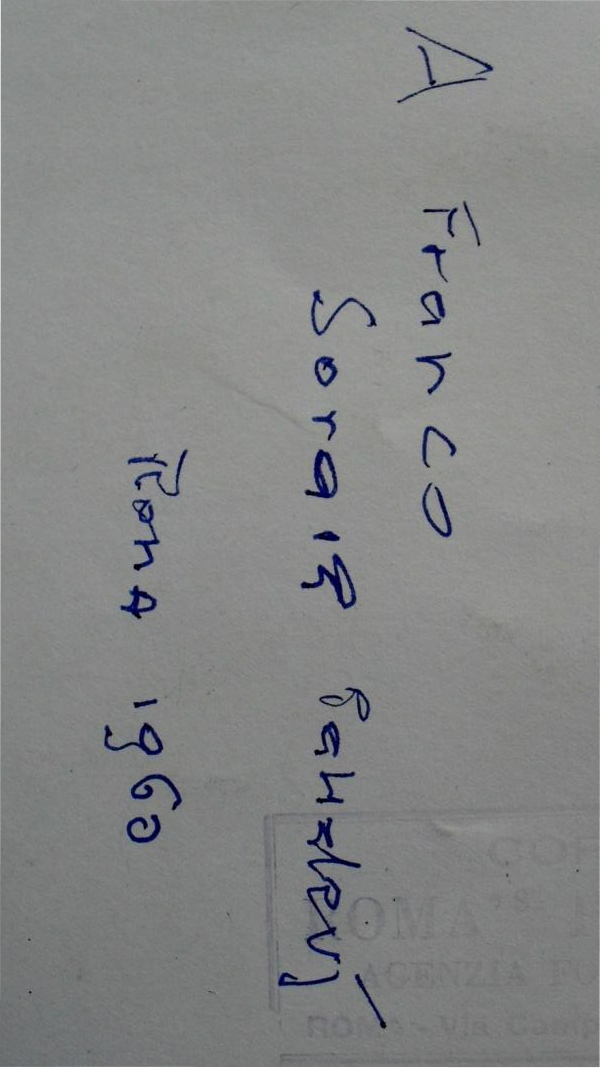 A Franco
Soraia Pahalevj
Roma 1960
COP
ROMA'S
AGENZIA FO
ROMA - Via Camp